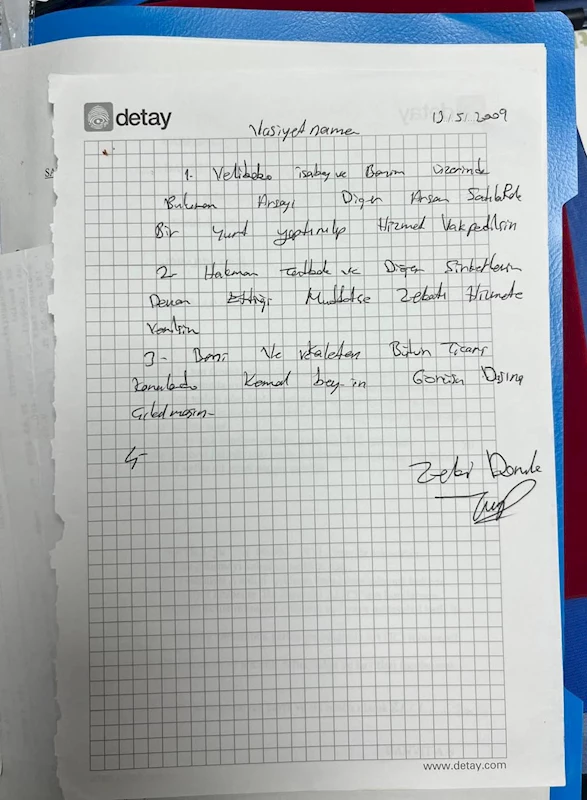 detay
19/5/2009
Vasiyetname
1. Velibaba isabey ve Benim üzerinde
Bulunan Arsayı Diğer Arsan
Bir Yurt yaptırılıp Hizmet Vakfedilsin
2- Hakman ve Diğer Şirketlerin
Devam Ettiği Müddetçe Zekatı Hizmete
Verilsin
3- Beni Ve Bütün Ticari
Konularda Kemal bey-in Görüşü Dışına
Çıkılmasın-
4-
Zeki
www.detay.com